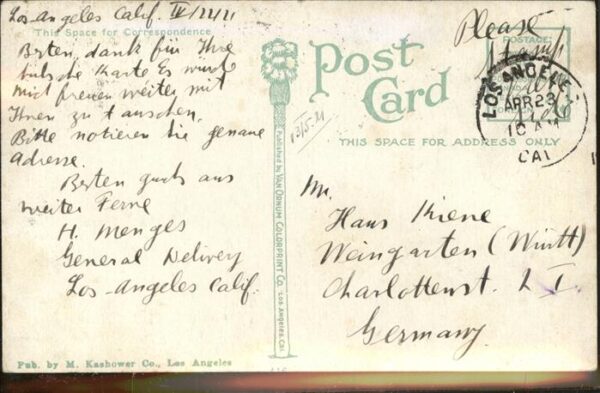 Los Angeles Calif. IV/22/21
This Space for Correspondence
Besten dank für Ihre
hübsche Karte Es würd
mich freuen weiter mit
Ihnen zu tauschen.
Bitte notieren Sie genaue
adresse.
Besten gruß aus
weiter Ferne
H. Menges
General Delivery
Los-Angeles Calif.
Pub. by M. Kashower Co., Los Angeles
Published by Van Ornum Colorprint Co. Los Angeles, Cal.
13/5.21
Post
Card
THIS SPACE FOR ADDRESS ONLY
Please
stamp
POSTAGE
LOS ANGELES
APR 23
10 AM
CAL
Mr.
Hans Kiene
Weingarten (Württ)
Charlottenst.
Germany.